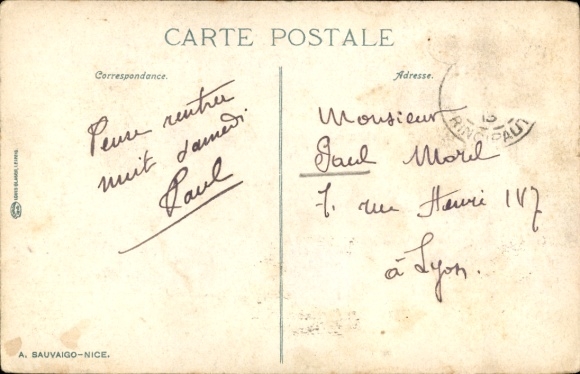 CARTE POSTALE
Correspondance.
Adresse.
Pense rentrer
nuit samedi.
Paul
Monsieur
Paul Morel
7. rue Henri IV
à Lyon.
A. SAUVAIGO-NICE.